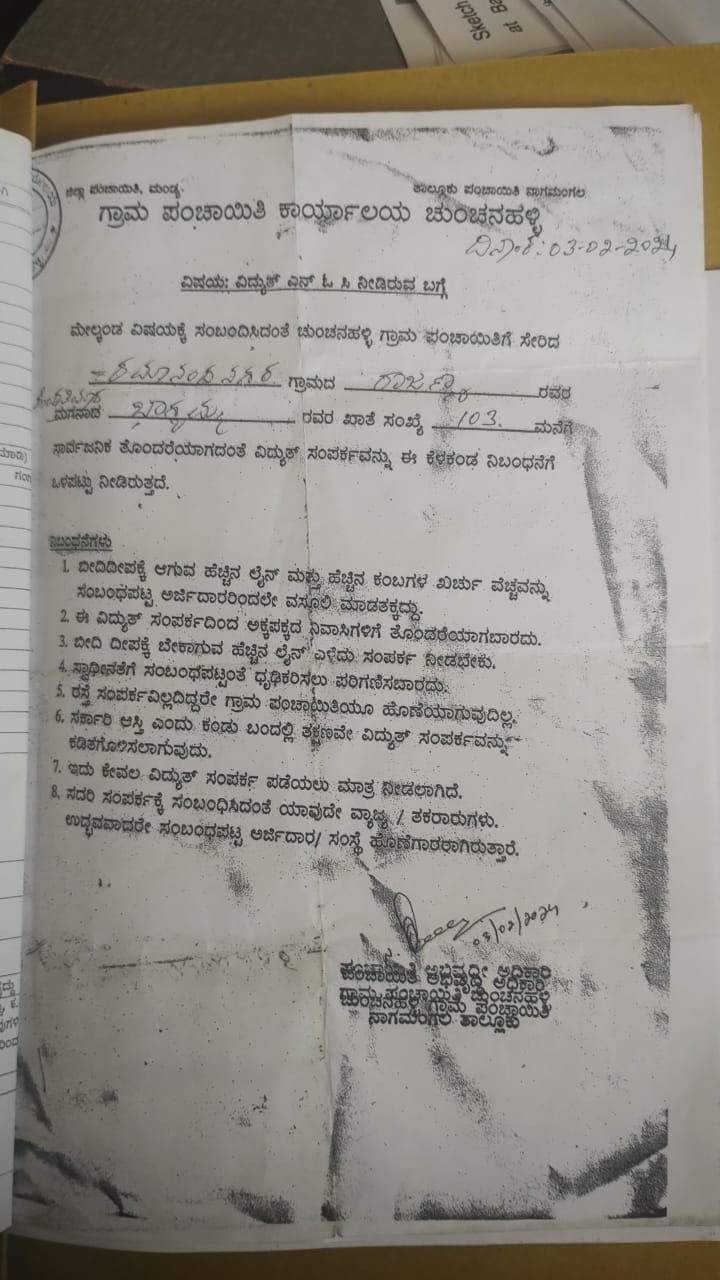 Sketch
at Ba
ಜಿಲ್ಲಾ ಪಂಚಾಯಿತಿ, ಮಂಡ್ಯ. ತಾಲ್ಲೂಕು ಪಂಚಾಯಿತಿ ನಾಗಮಂಗಲ
ಗ್ರಾಮ ಪಂಚಾಯಿತಿ ಕಾರ್ಯಾಲಯ ಚುಂಚನಹಳ್ಳಿ
ದಿನಾಂಕ: 03-02-2024
ವಿಷಯ: ವಿದ್ಯುತ್ ಎನ್ ಓ ಸಿ ನೀಡಿರುವ ಬಗ್ಗೆ
ಮೇಲ್ಕಂಡ ವಿಷಯಕ್ಕೆ ಸಂಬಂದಿಸಿದಂತೆ ಚುಂಚನಹಳ್ಳಿ ಗ್ರಾಮ ಪಂಚಾಯಿತಿಗೆ ಸೇರಿದ
ರಮಾನಂದ ನಗರ ಗ್ರಾಮದ ರಾಜಣ್ಣ ರವರ
ಮಗನಾದ ಭಾಗ್ಯಮ್ಮ ರವರ ಖಾತೆ ಸಂಖ್ಯೆ 103. ಮನೆಗೆ
ಸಾರ್ವಜನಿಕ ತೊಂದರೆಯಾಗದಂತೆ ವಿದ್ಯುತ್ ಸಂಪರ್ಕವನ್ನು ಈ ಕೆಳಕಂಡ ನಿಬಂಧನೆಗೆ
ಒಳಪಟ್ಟು ನೀಡಿರುತ್ತದೆ.
ನಿಬಂಧನೆಗಳು
1. ಬೀದಿದೀಪಕ್ಕೆ ಆಗುವ ಹೆಚ್ಚಿನ ಲೈನ್ ಮತ್ತು ಹೆಚ್ಚಿನ ಕಂಬಗಳ ಖರ್ಚು ವೆಚ್ಚವನ್ನು
ಸಂಬಂಧಪಟ್ಟ ಅರ್ಜಿದಾರರಿಂದಲೇ ವಸೂಲಿ ಮಾಡತಕ್ಕದ್ದು.
2. ಈ ವಿದ್ಯುತ್ ಸಂಪರ್ಕದಿಂದ ಅಕ್ಕಪಕ್ಕದ ನಿವಾಸಿಗಳಿಗೆ ತೊಂಡರೆಯಾಗಬಾರದು.
3. ಬೀದಿ ದೀಪಕ್ಕೆ ಬೇಕಾಗುವ ಹೆಚ್ಚಿನ ಲೈನ್ ಎಳೆದು ಸಂಪರ್ಕ ನೀಡಬೇಕು.
4. ಸ್ವಾಧೀನತೆಗೆ ಸಂಬಂಧಪಟ್ಟಂತೆ ಧೃಢಿಕರಿಸಲು ಪರಿಗಣಿಸಬಾರದು.
5. ರಸ್ತೆ ಸಂಪರ್ಕವಿಲ್ಲದಿದ್ದರೇ ಗ್ರಾಮ ಪಂಚಾಯಿತಿಯೂ ಹೊಣೆಯಾಗುವುದಿಲ್ಲ.
6. ಸರ್ಕಾರಿ ಆಸ್ತಿ ಎಂದು ಕಂಡು ಬಂದಲ್ಲಿ ತಕ್ಷಣವೇ ವಿದ್ಯುತ್ ಸಂಪರ್ಕವನ್ನು
ಕಡಿತಗೊಳಿಸಲಾಗುವುದು.
7. ಇದು ಕೇವಲ ವಿದ್ಯುತ್ ಸಂಪರ್ಕ ಪಡೆಯಲು ಮಾತ್ರ ನೀಡಲಾಗಿದೆ.
8. ಸದರಿ ಸಂಪರ್ಕಕ್ಕೆ ಸಂಬಂಧಿಸಿದಂತೆ ಯಾವುದೇ ವ್ಯಾಜ್ಯ / ತಕರಾರುಗಳು.
ಉದ್ಭವವಾದರೇ ಸಂಬಂಧಪಟ್ಟ ಅರ್ಜಿದಾರ/ ಸಂಸ್ಥೆ ಹೊಣೆಗಾರರಾಗಿರುತ್ತಾರೆ.
03/02/2024
ಪಂಚಾಯಿತಿ ಅಭಿವೃದ್ಧಿ ಅಧಿಕಾರಿ
ಗ್ರಾಮ ಪಂಚಾಯಿತಿ ಚುಂಚನಹಳ್ಳಿ
ನಾಗಮಂಗಲ ತಾಲ್ಲೂಕು